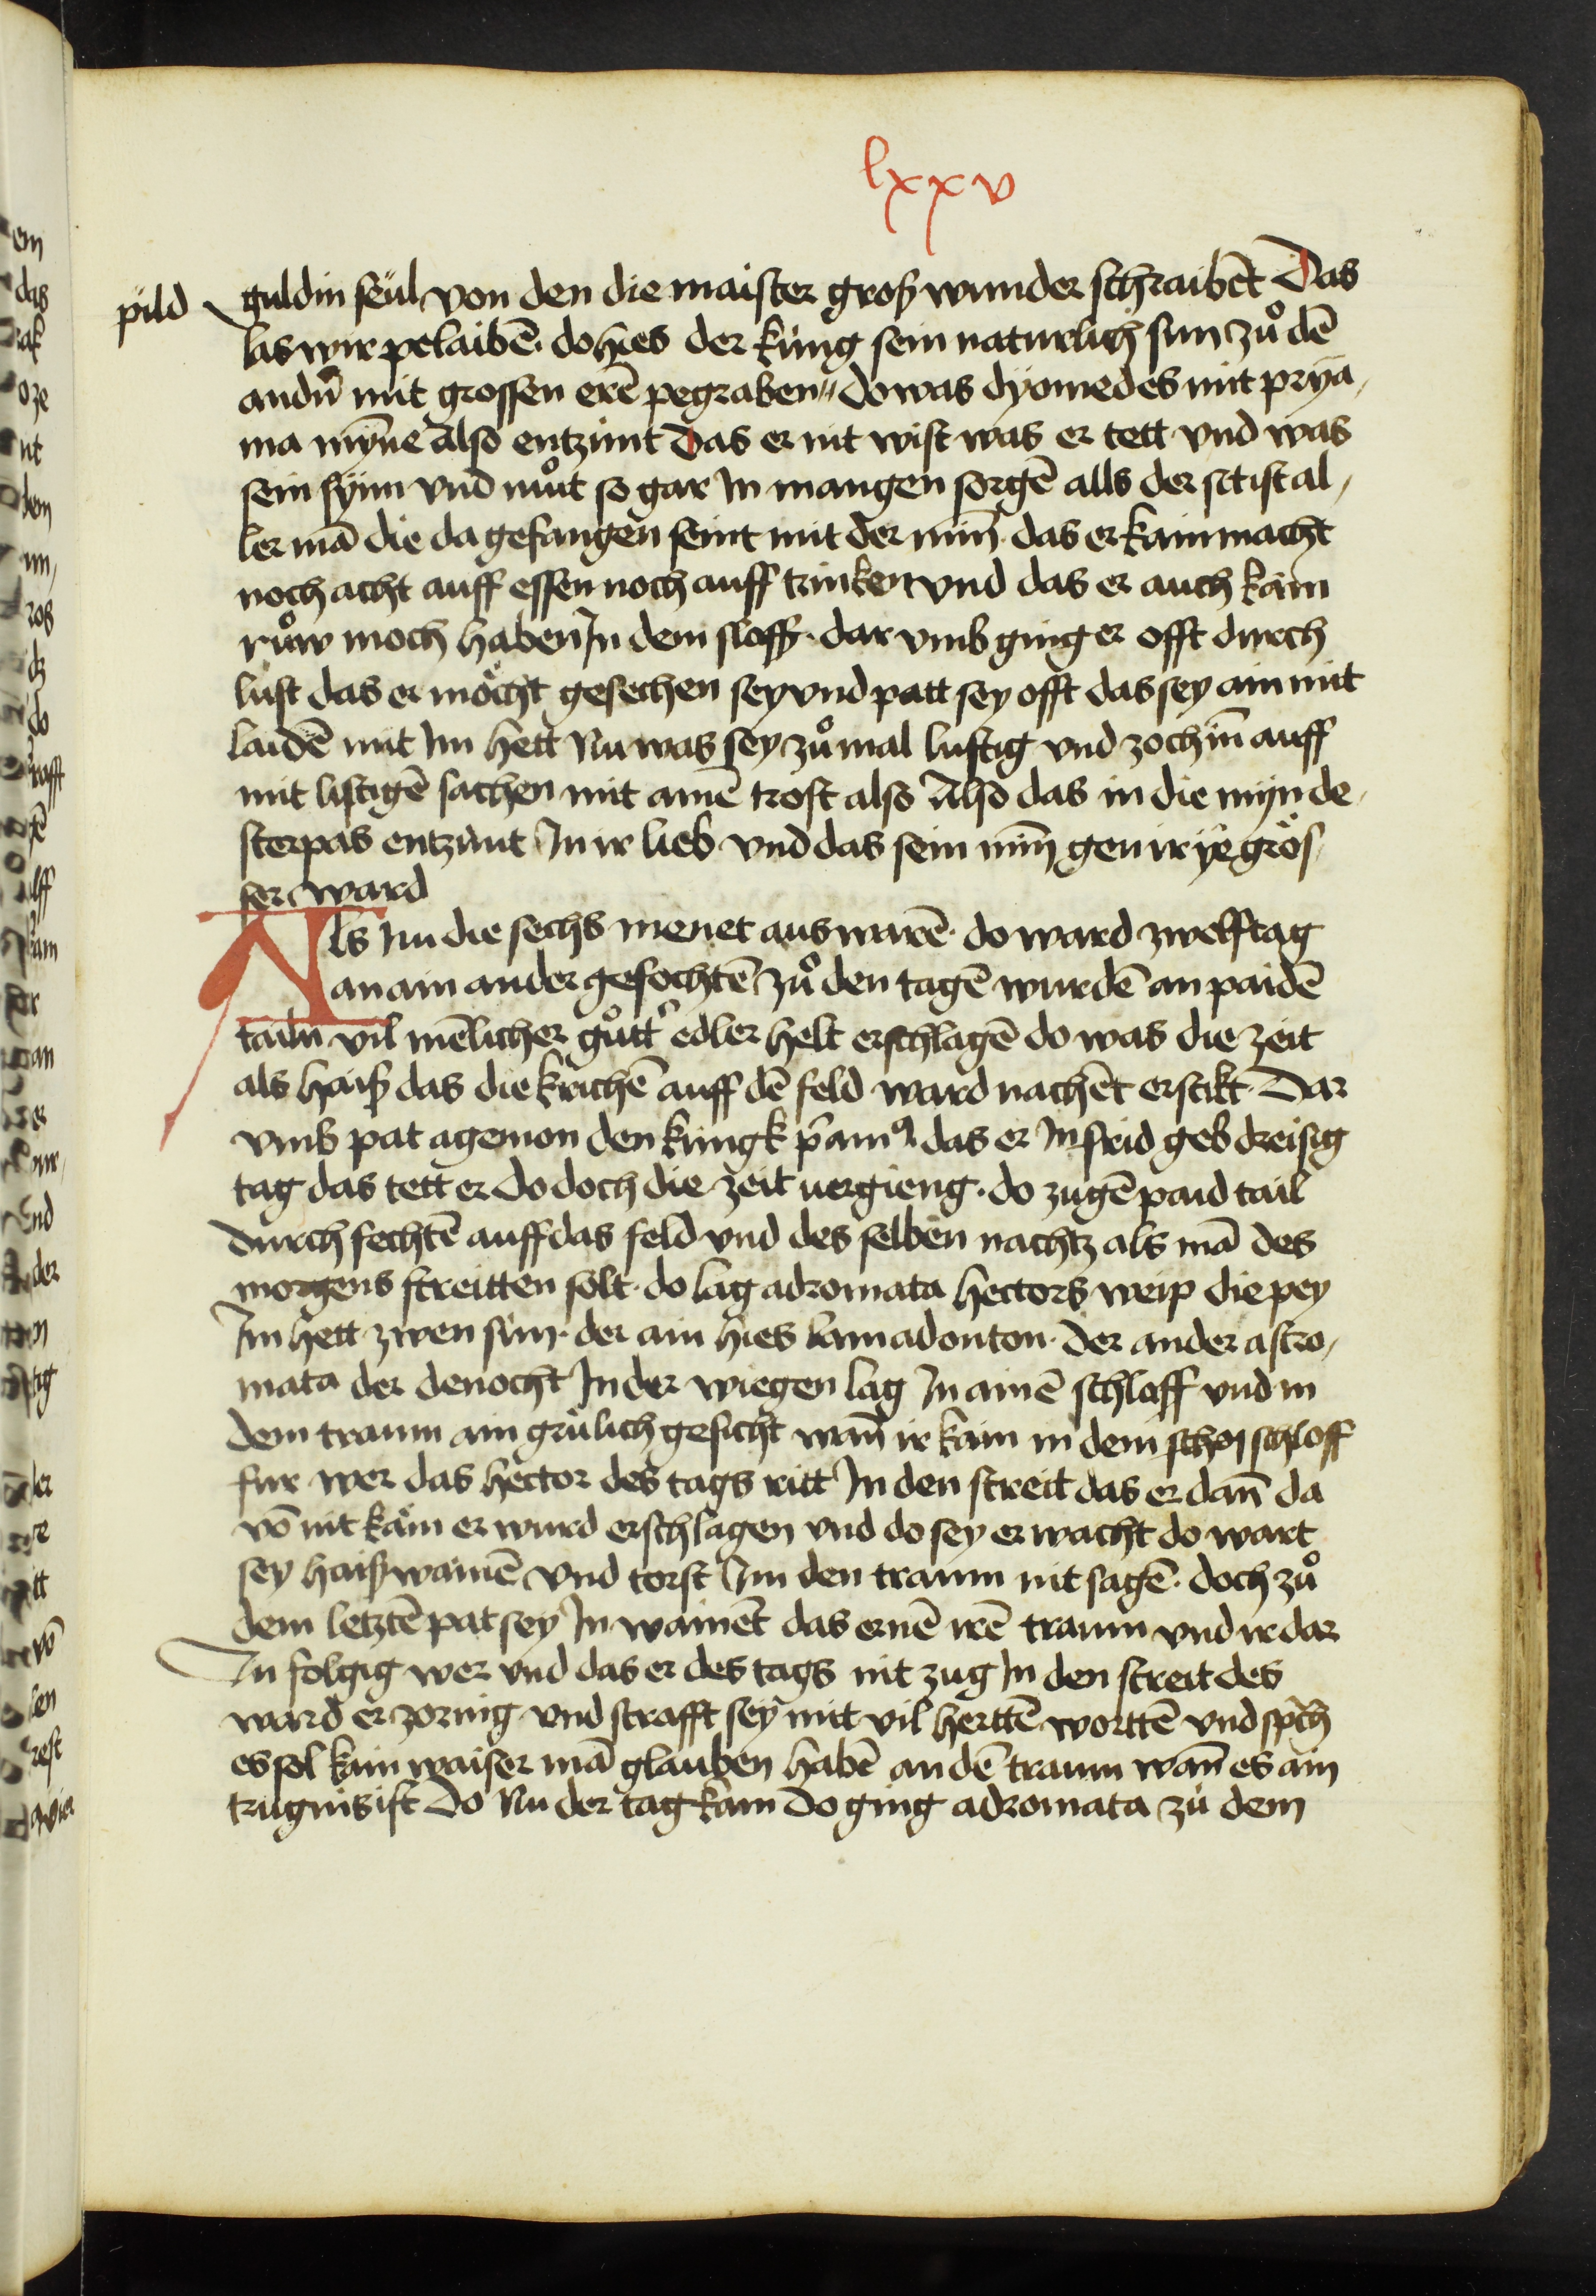 lxxv
pild guldin seül von den die maister groß wunder schraibēt Das
las wir pelaibē. do hies der küng sein naturlich sun zuͦ dē
andn̄ mit grossen erē pegraben do was dyomedes mit prya,
ma myne Also entzünt Das er nit wist was er tett vnd was
sein synn vnd muͦt so gar In mangen sorgē alls der sit ist al,
ler mā die da gefangen seint mit der min̄ das er kain macht
noch acht auff essen noch auff trinken vnd das er auch kain
ruͦw moch haben In dem slaff. dar vmb ging er offt durch
lust das er möcht gesechen sey vnd patt sey offt das sey ain mit
laidē mit Im hett Nu was sey zuͦ mal lustig vnd zoch in̄ auff
mit listigē sachen mit ainē trost also Also das in die myn de,
sterpas entzünt In ir lieb vnd das sein min̄ gen ir ye grös,
ser ward
Als nu die sechs menet aus warē. do ward zwelf tag
an ain ander gefochtē zuͦ den tagē wurdē an paidē
tailn vil mēlicher guͦtt' edler helt erschlagē do was die zeit
als haiß das die krichē auff dē feld ward nachēt erstikt. Dar
vmb pat agemon den küngk p̄amꝰ das er In frid geb dreisig
tag das tett er do doch die zeit uergieng. do zugē paid tail
durch fechtē auff das feld vnd des selben nachtz als mā des
morgens streitten solt. do lag adromata hectors weip die pey
Im hett zwen sün. der ain hies lamadonton. der ander astro,
mata der denocht In der wiegen lag In ainē schlaff vnd in
dem traum ain grülich gesicht wan̄ ir kam in dem schloff
fur wer das hector des tags ritt In den streit das er dan̄ da
vō nit käm er wurd erschlagen vnd do sey erwacht do wart
sey haiß wainē vnd torst Im den traum nit sagē. doch zuͦ
dem letztē pat sey In wainēt das er nē irē traum vnd ir dar
In folgig wer vnd das er des tags nit zug In den streit des
ward er zornig vnd strafft sey mit vil herttē worttē vnd spch̄
es sol kain waiser mā glauben habē an dē traum wan̄ es ain
trugnis ist Do Nu der tag kam Do ging adromata zu dem